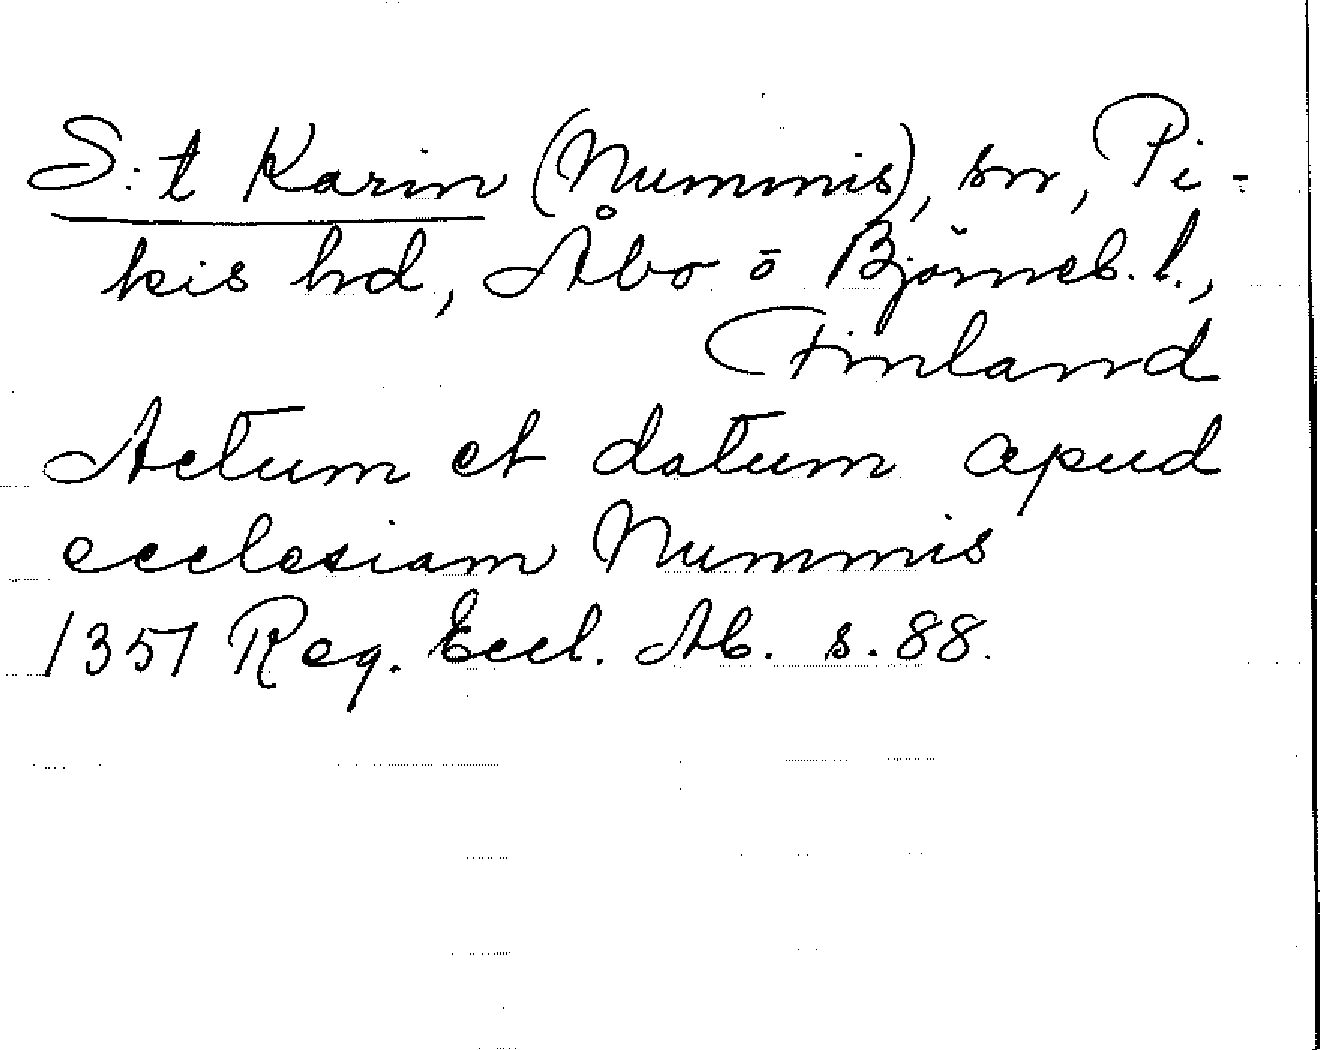 S:t Karin (Nummis), sn, Pi-
kis hd, Åbo o Björneb. l.,
Finland
Actum et datum apud
ecclesiam Nummis
1351 Reg. Eccl. Ab. s. 88.